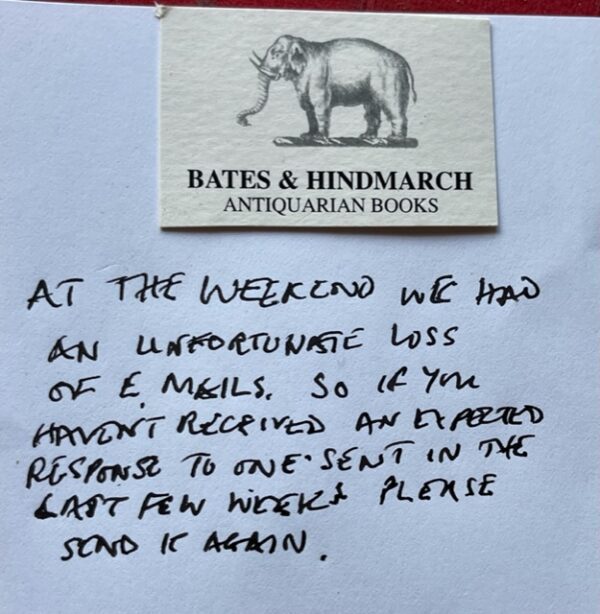 BATES & HINDMARCH
ANTIQUARIAN BOOKS
AT THE WEEKEND WE HAD
AN UNFORTUNATE LOSS
OF E. MAILS. SO IF YOU
HAVENT RECEIVED AN EXPECTED
RESPONSE TO ONE SENT IN THE
LAST FEW WEEKS PLEASE
SEND IT AGAIN.